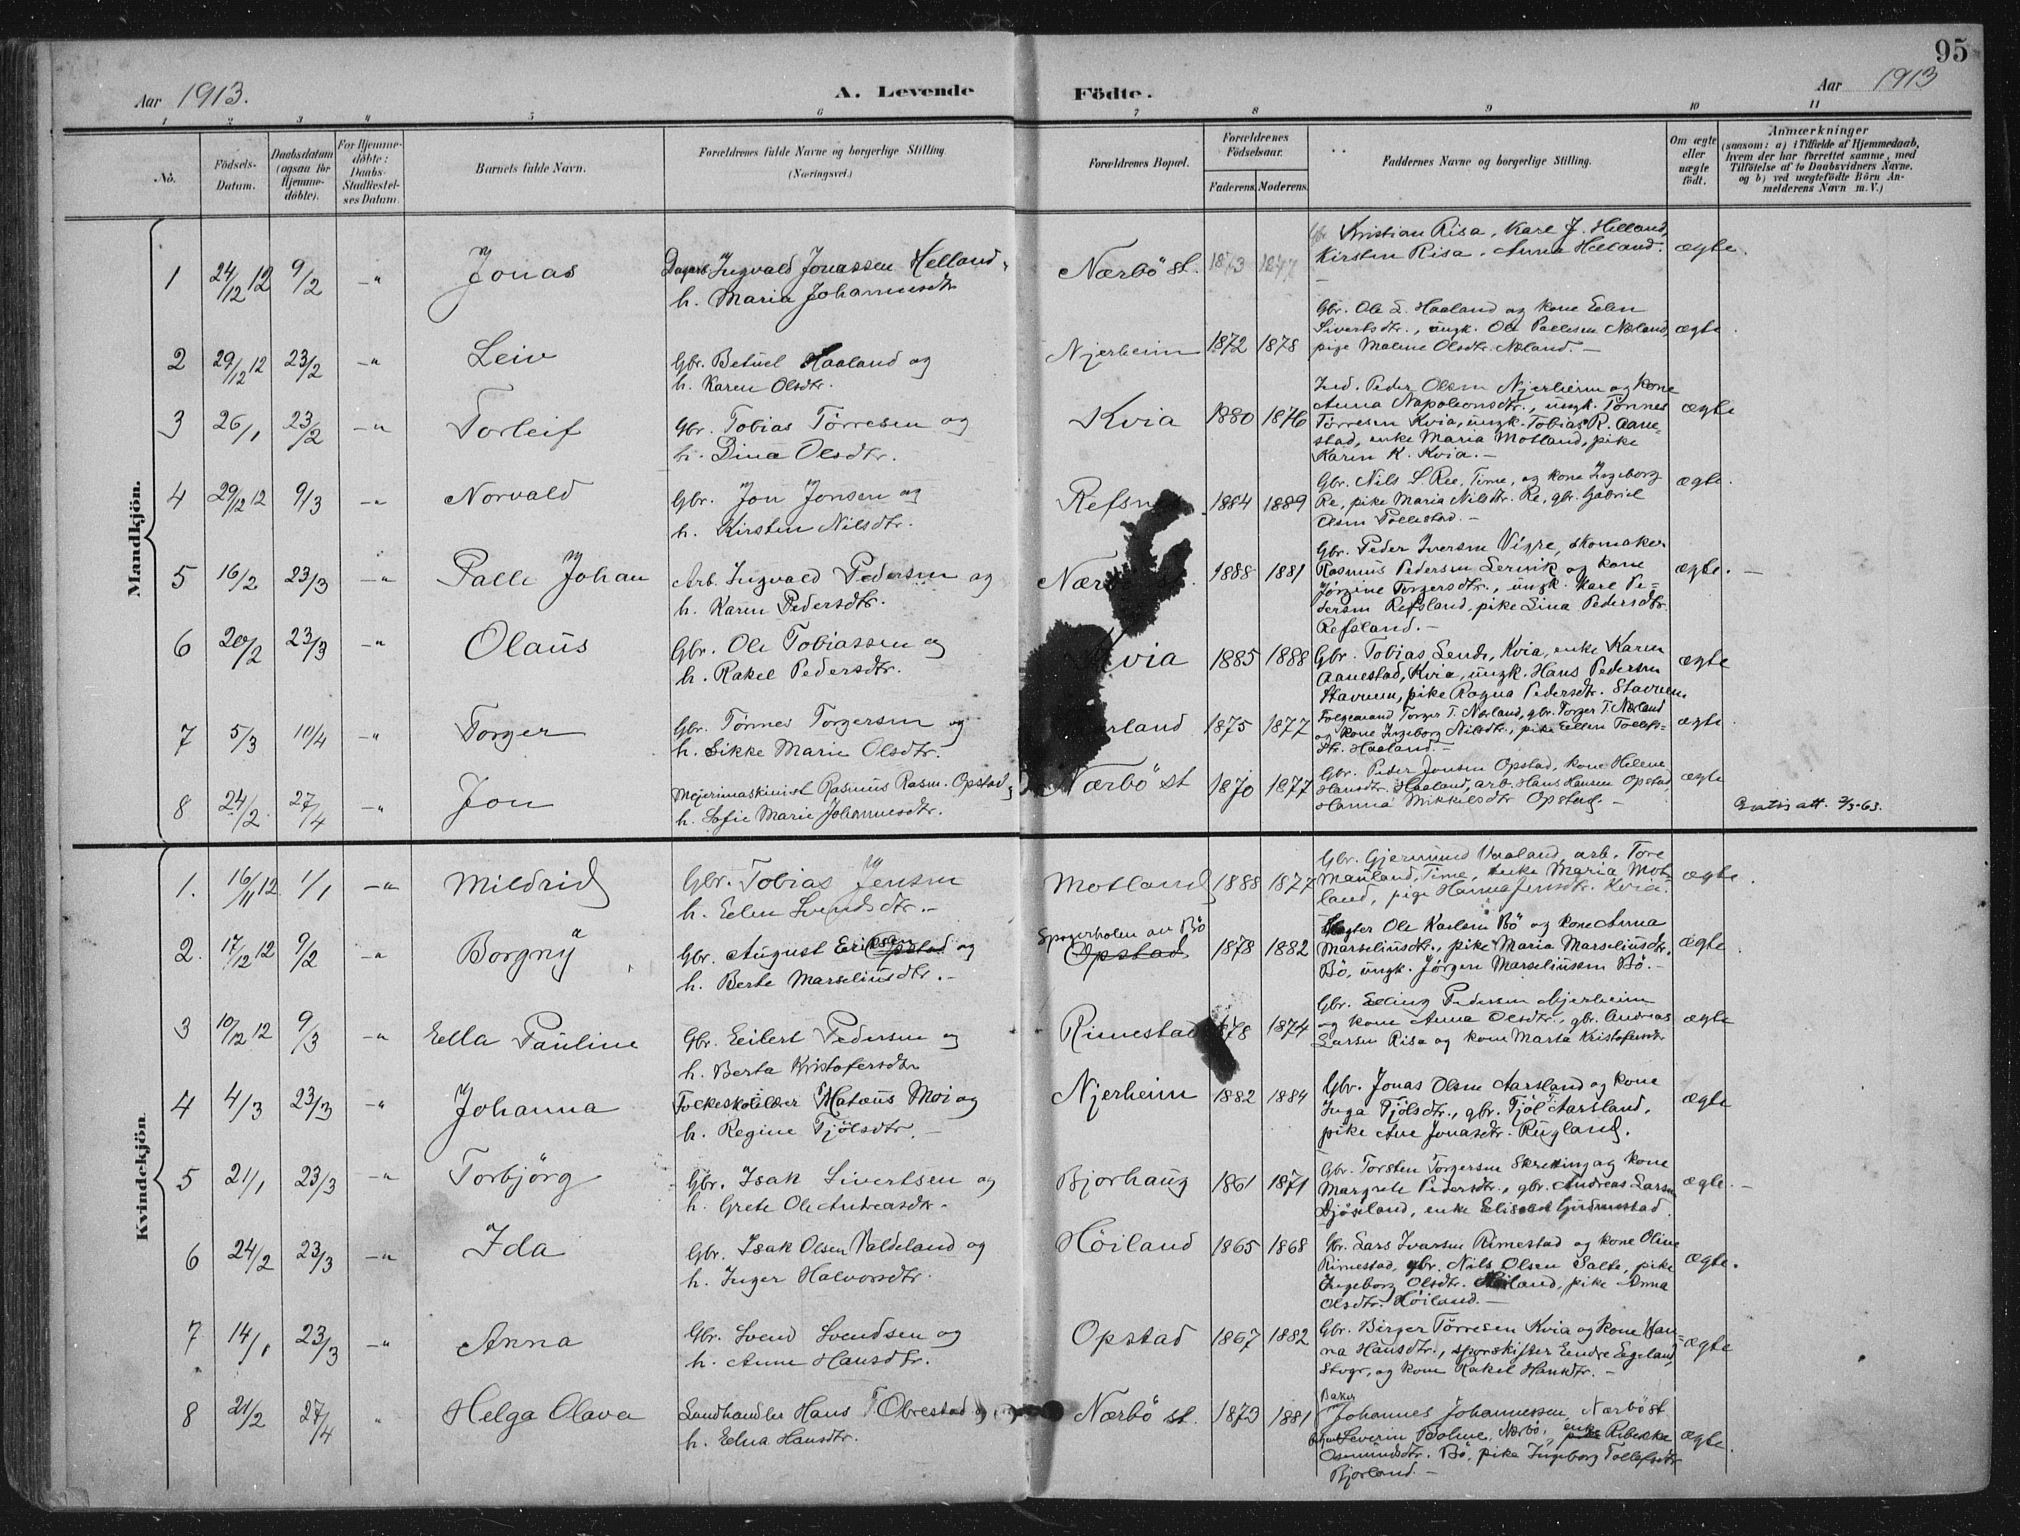 95
Aar 1913.
A. Levende Födte.
Aar 1913
1 2 3 4 5 6 7 8 9 10 11
No.
Födsels-Datum.
Daabsdatum (ogsaa for Hjemme-döbte).
For Hjemme-döbte: Daabs-Stadfæstel-ses Datum.
Barnets fulde Navn.
Forældrenes fulde Navne og borgerlige Stilling.
(Næringsvei.)
Forældrenes Bopæl.
Forældrenes Födselsaar.
Faderens. Moderens.
Faddernes Navne og borgerlige Stilling.
Om ægte eller uægte födt.
Anmærkninger
(saasom: a) i Tilfælde af Hjemmedaab, hvem der har forrettet samme, med Tilföielse af to Daabsvidners Navne. og b) ved uægtefödte Börn An-melderens Navn m. V.)
Mandkjön.
1 24/12 12 9/2 -"- Jonas
Ingvald Jonassen Helland
h. Maria Johannesdtr
Nærbö st. 1873
Kristian Risa, Karl J. Helland,
Kirsten Risa, Anna Helland.
ægte.
2 29/12 12 23/2 -"- Leiv
Gbr. Betuel Haaland og
h. Karen Olsdtr.
Njerheim 1872 1878
Gbr. Ole S. Haaland og kone Elen
Sivertsdtr., ungk. Ole Pallesen Nærland,
pige Malene Olsdtr. Nærland. –
ægte.
3 26/1 23/2 -"- Torleif
Gbr. Tobias Törresen og
h. Dina Olsdtr.
Kvia 1880 1876
Ind. Peder Olsen Njerheim og kone
Anna Napoleonsdtr., ungk. Tönnes
Törresen Kvia, ungk. Tobias R. Aane-
stad, enke Maria Motland, pike
Karen K. Kvia. –
ægte
4 29/12 12 9/3 -"- Norvald
Gbr. Jon Jonsen og
h. Kirsten Nilsdtr.
1884 1889
Gbr. Nils S. Ree, Time, og kone Ingeborg
Re, pike Maria Nilsdtr. Re, gbr. Gabriel
Olsen Tollestad. –
ægte.
5 16/2 23/3 -"- Palle Johan
Arb. Ingvald Pedersen og
h. Karen Pedersdtr.
1888 1881
Gbr. Peder Iversen Vigre, skomaker
Rasmus Pedersen Lervik og kone
Jörgine Torgersdtr., ungk. Karl Pe-
dersen Refsland, pike Lina Pedersdtr.
Refsland. –
ægte. –
6 20/2 23/3 -"- Olaus
Gbr. Ole Tobiassen og
h. Rakel Pedersdtr.
Kvia 1885 1888
Gbr. Tobias Sends, Kvia, enke Karen
Aanestad, Kvia, ungk. Hans Pedersen
Stavrum, pike Ragna Pedersdtr. Stavrum.
ægte
7 5/3 10/4 -"- Torger
Gbr. Tönnes Torgersen og
h. Sikke Marie Olsdtr.
1875 1877
Folgemand Torger T. Nærland, gbr. Torger T. Nærland
og kone Ingeborg Nilsdtr., pike Ellen Tollefs-
dtr. Haaland. –
ægte
8 24/2 27/4 -"- Jon
Mejerimaskinist Rasmus Rasm. Opstad
h. Sofie Marie Johannesdtr.
Nærbö st 1870 1877
Gbr. Peder Jonsen Opstad, kone Helene
Hansdtr. Haaland, arb. Hans Hansen Opstad
Hanna Mikkelsdtr Opstad –
ægte
Kvindekjön
1. 16/11 12 1/1 -"- Mildrid
Gbr. Tobias Jensen
h. Elen Svendsdtr. –
Motland 1888 1877
Gbr. Gjermund Vaaland, arb. Tore
Mauland, Time, enke Maria Mot-
land, pige Hanna Jensdtr. Kvia.
ægte.
2. 17/12 12 9/2 -"- Borgny
Gbr. August Eriksen Opstad og
h. Berte Marseliusdtr. –
av Bö
Opstad 1878 1882
Ole Karlsen Bö og kone Anna
Marseliusdtr., pike Maria Marseliusdtr.
Bö, ungk. Jörgen Marseliussen Bö. –
ægte
3 10/12 12 9/3 -"- Ella Pauline
Gbr. Eilert Pedersen og
h. Berta Kristofersdtr
Rimestad 1878 1874
Gbr. Elling Pedersen Njerheim
og kone Anna Olsdtr., gbr. Andreas
Larsen Risa og kone Marta Kristofersdtr
ægte
4 4/3 23/3 -"- Johanna
Folkeskolelærer Matæus Moi og
h. Regine Tjölsdtr. –
Njerheim 1882 1884
Gbr. Jonas Olsen Aarsland og kone
Inga Tjölsdtr., gbr. Tjöl T. Aarsland,
pike Ane Jonasdtr. Rugland.
ægte
5 21/1 23/3 -"- Torbjörg
Gbr. Isak Sivertsen og
h. Grete Ole Andreasdtr.
Bjorhaug 1861 1871
Gbr. Torsten Torgersen Skretting og kone
Margrete Pedersdtr., gbr. Andreas Larsen
Djösland, enke Elisabet Gudmestad.
ægte. –
6 24/2 23/3 -"- Ida
Gbr. Isak Olsen Valdeland og
h. Inger Halvorsdtr.
Höiland 1865 1868
Gbr. Lars Ivarsen Rimestad og kone Oline
Rimestad, gbr. Nils Olsen Salte, pike
Ingeborg Olsdtr. Höiland, pike Anna
Olsdtr. Höiland. –
ægte.
7 14/1 23/3 -"- Anna
Gbr. Svend Svendsen og
h. Anne Hansdtr.
Opstad 1867 1882
Gbr. Birger Törresen Kvia og kone Han-
na Hansdtr., sporskifter Endre Egeland,
Stvgr., og kone Rakel Hansdtr. –
ægte
8 21/2 27/4 " Helga Olava
Landhandler Hans T. Obrestad og
h. Edna Hansdtr.
Nærbö st. 1873 1881
Baker
Johannes Johannessen, Nærbö st
Severin Bolme, Nærbö, enke pike Rebekke
Osmundsdtr. Bö, pike Ingeborg Tollefsdtr
Bjorland. –
ægte.